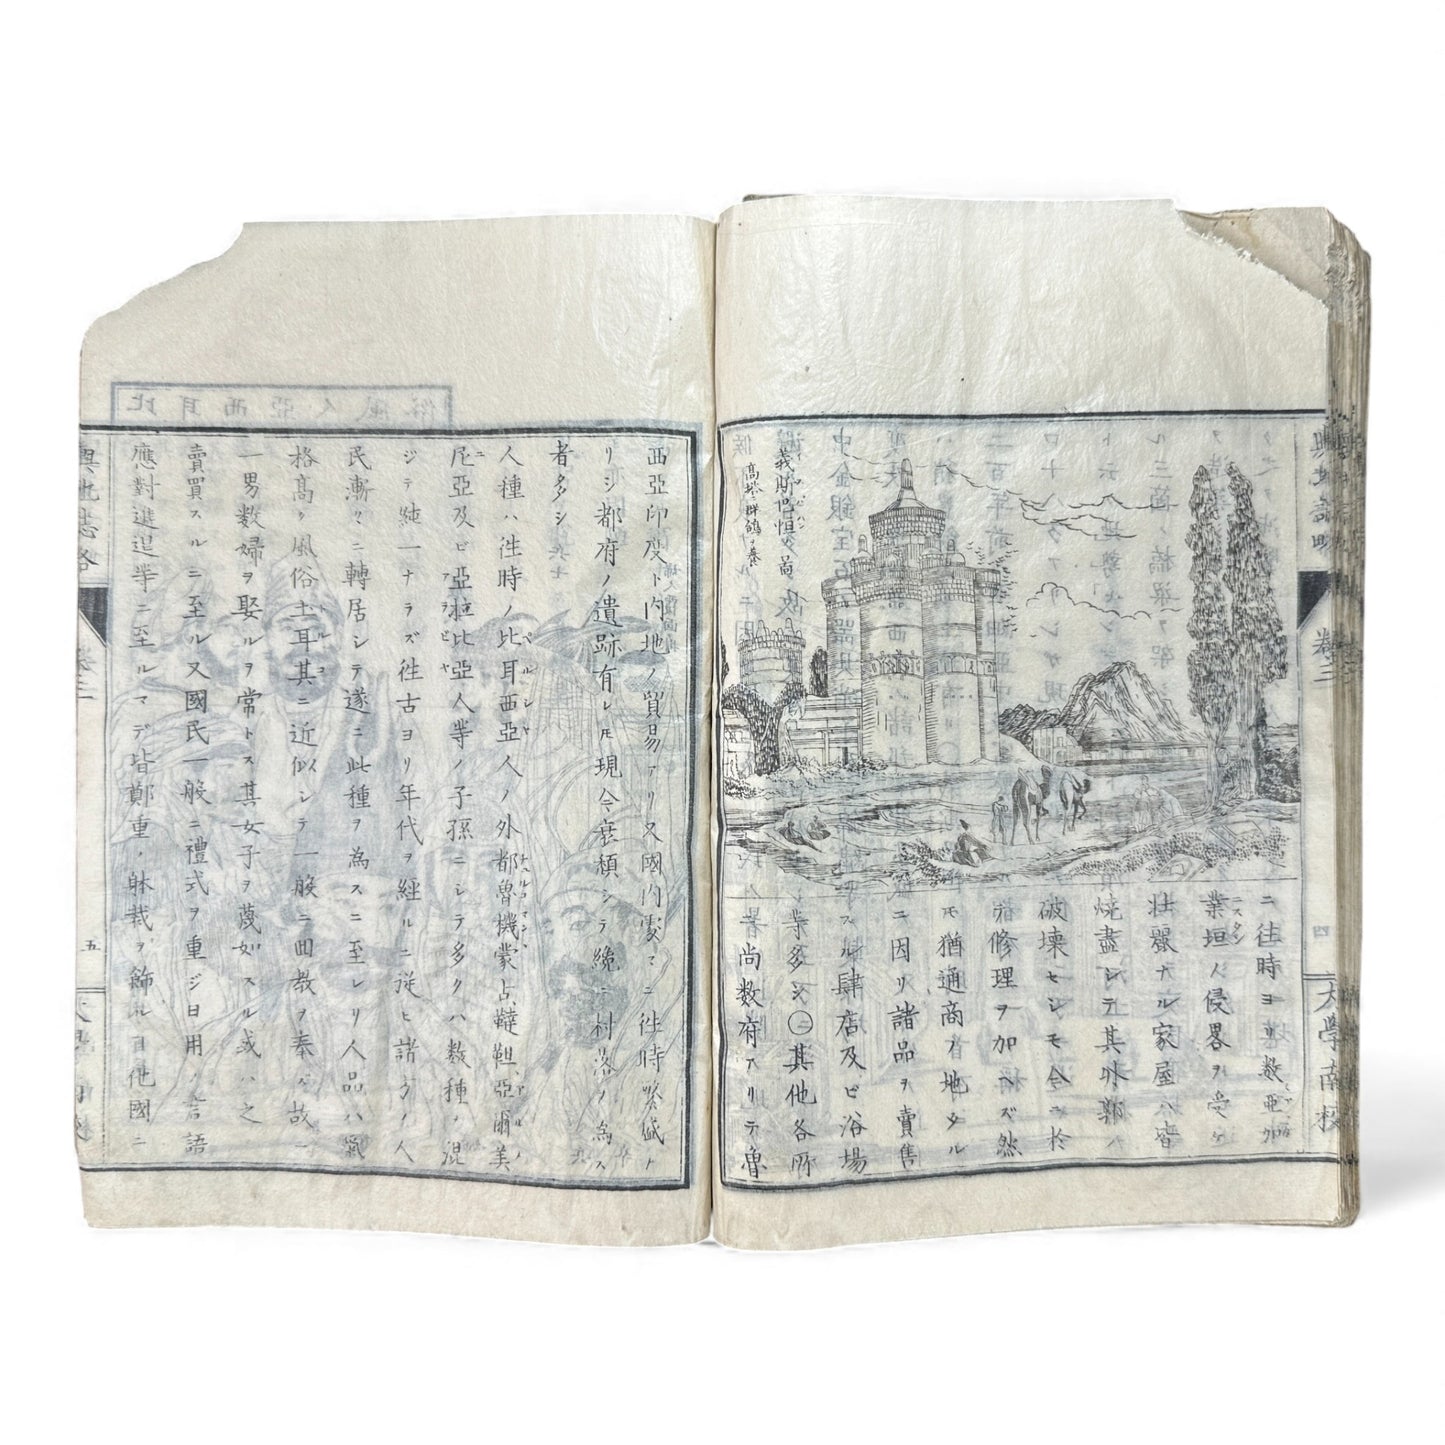 義斯巴恒ノ
高塔ニ群鴿ヲ養
ニ往時ヨリ數亜加
業垣ハ侵畧ヲ受ケ
ニスタン
壮嚴ナル家屋ハ皆
焼盡シテ其外郭ハ
破壊セシモ今ニ於
修理ヲ加ヘズ然
モ猶通商ノ地タル
ニ因リ諸品ヲ賣售
スル肆店及ビ浴場
等多シ○其他各所
尚数府アリテ魯
輿地誌略
卷二
四
大學南校
西亞印度ト内地ノ貿易アリ又國内處々ニ往時繁盛ナ
リシ都府ノ遺跡有レ𪜈現今衰頽シテ纔ニ村落ノ為ス
者多シ
人種ハ往時ノ比耳西亞人ノ外都魯機蒙古韃靼亞爾美
ペルシヤ
尼亞及ビ亞拉比亞人等ノ子孫ニシテ多クハ数種ノ混
アラビヤ
ジテ純一ナラズ徃古ヨリ年代ヲ經ルニ從ヒ諸方ノ人
民漸々ニ轉居シテ遂ニ此種ヲ為スニ至レリ人品ハ氣
格高ク風俗土耳其ニ近似シテ一般ニ回教ヲ奉ズ故ニ
トルコ
一男数婦ヲ娶ルヲ常トス其女子ヲ蔑如スル或ハ之ヲ
賣買スルニ至ル又國民一般ニ禮式ヲ重ジ日用ノ言語
應對進退等ニ至ルマデ皆鄭重ノ躰裁ヲ飾ル自他國ニ
輿地誌畧
卷二
五